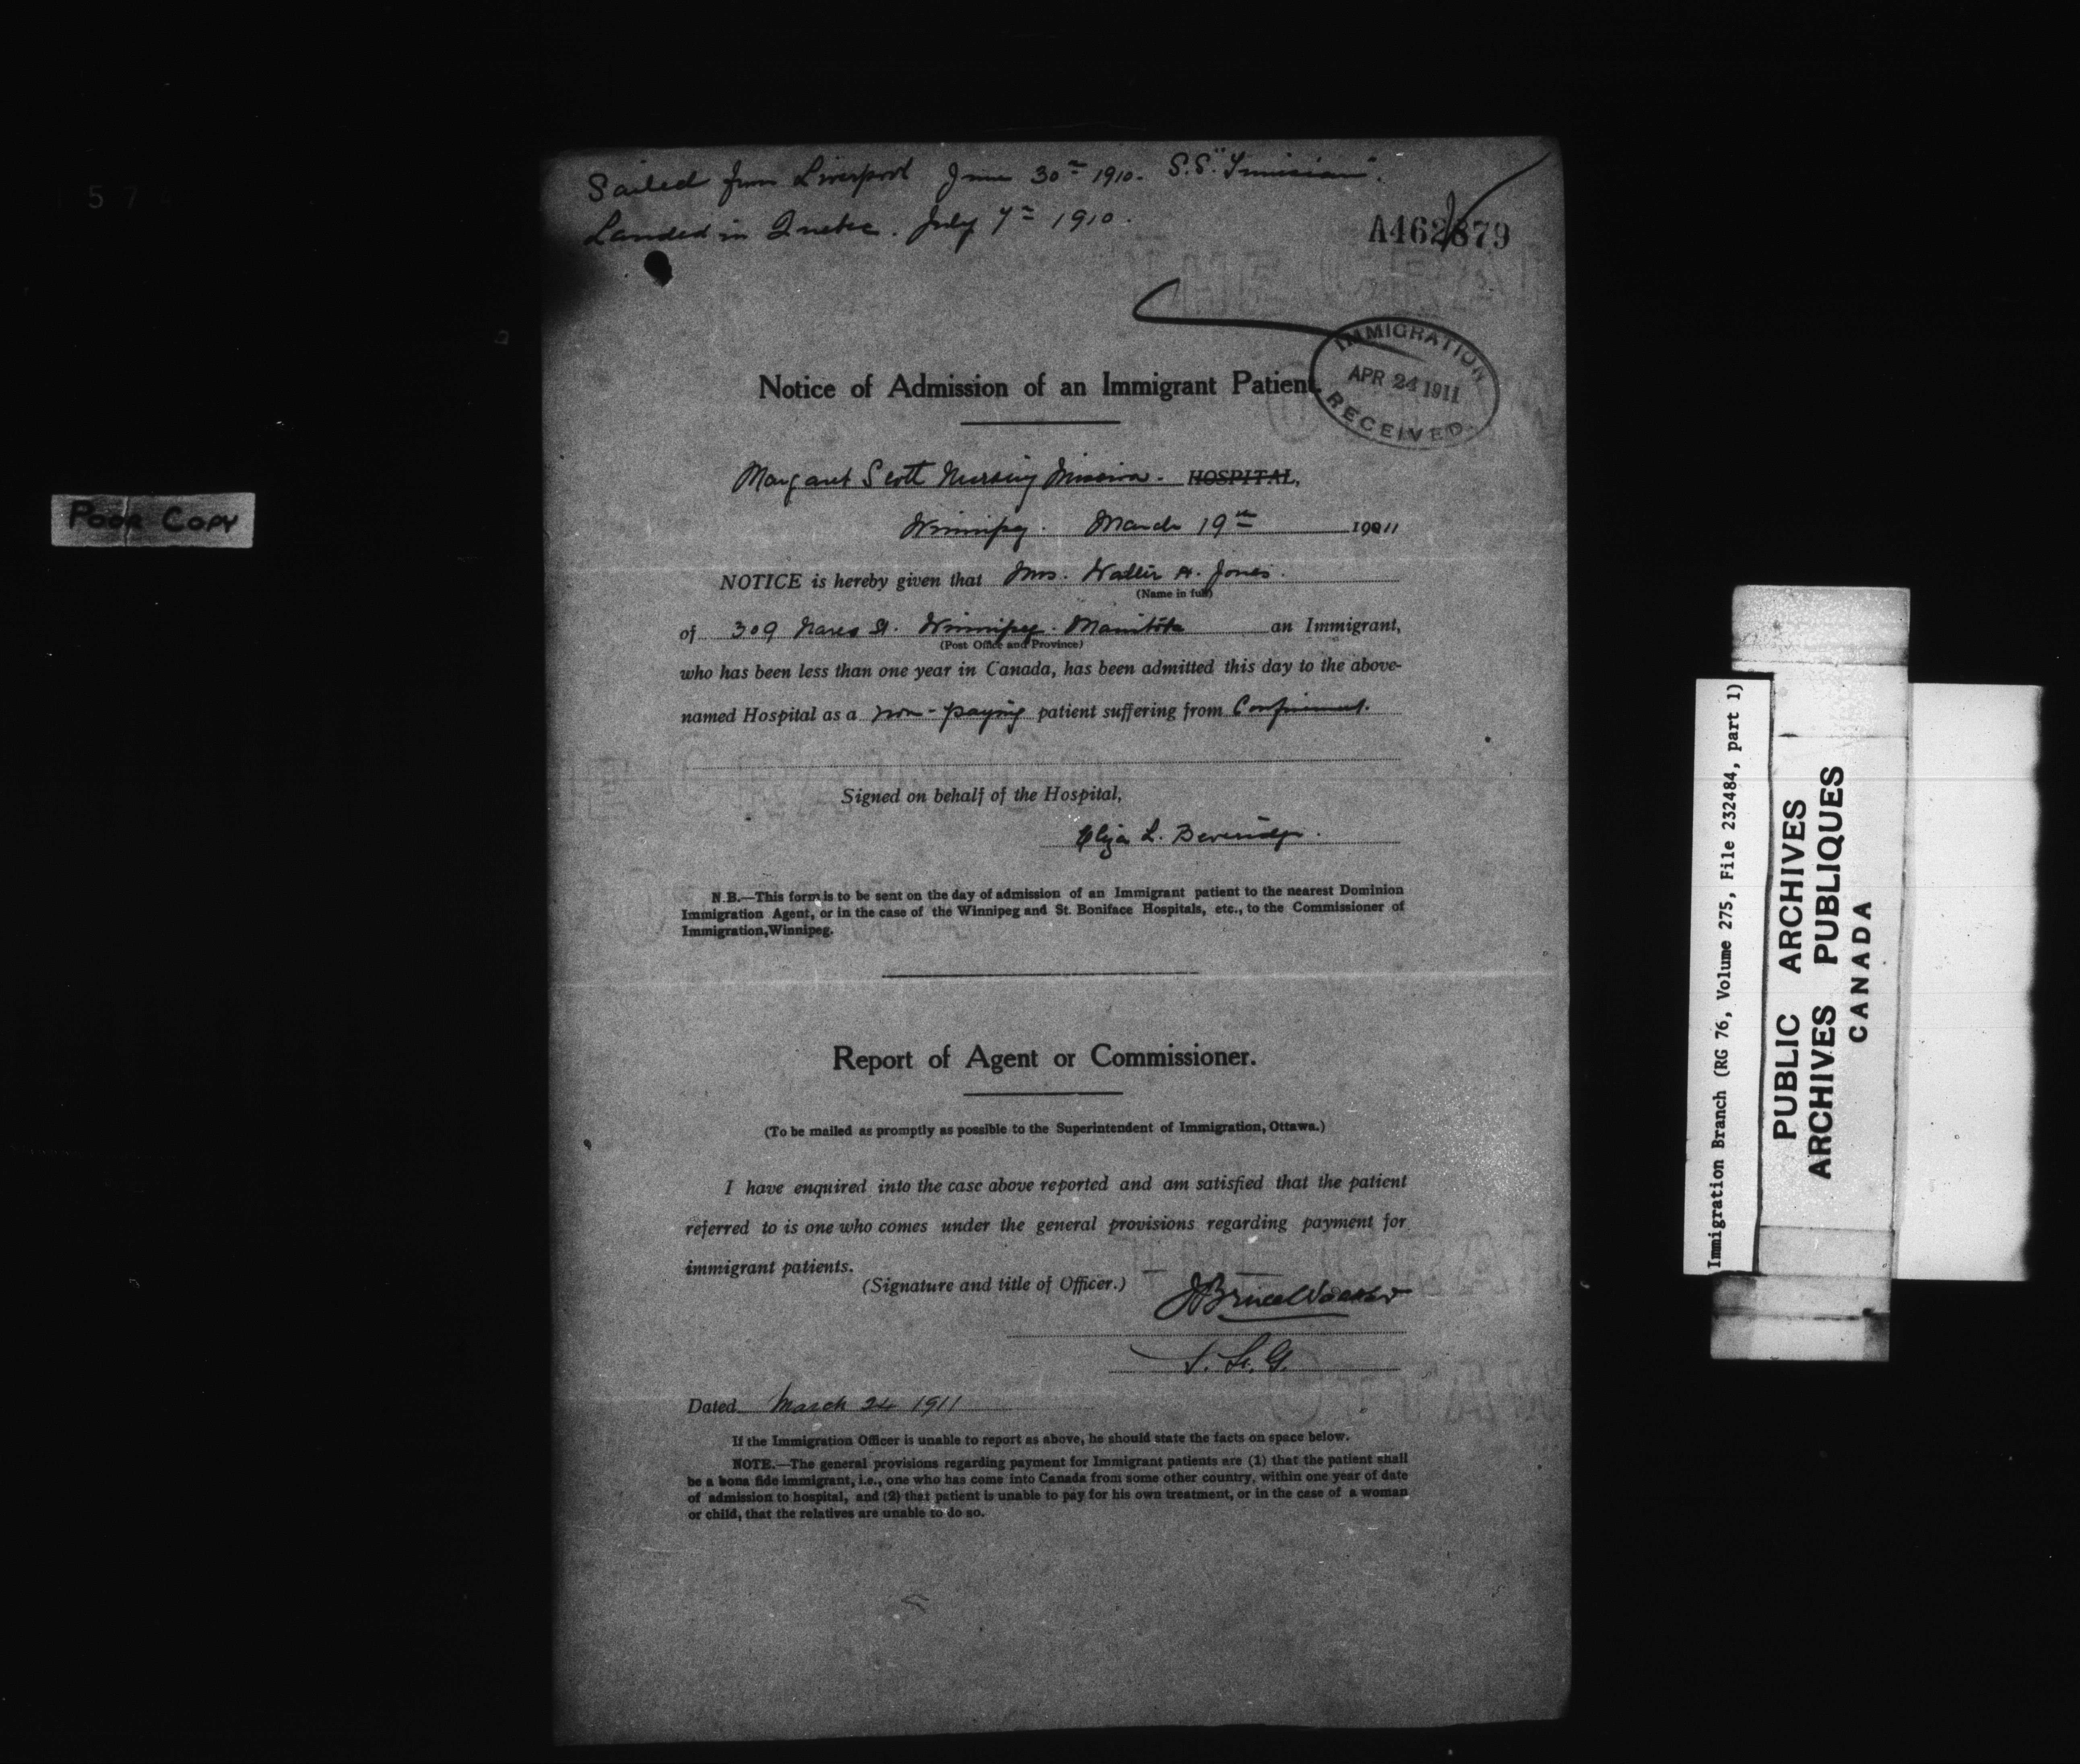 Sailed from Liverpool June 30th 1910. S.S. "Tunisian".
Landed in Quebec. July 7th 1910.
A462879
IMMIGRATION
APR 24 1911
RECEIVED
Notice of Admission of an Immigrant Patient.
Margaret Scott Nursing Mission. HOSPITAL,
Winnipeg. March 19th 1911
NOTICE is hereby given that Mrs. Walter A. Jones.
(Name in full)
of 309 Nares St. Winnipeg. Manitoba an Immigrant,
(Post Office and Province)
who has been less than one year in Canada, has been admitted this day to the above-
named Hospital as a non-paying patient suffering from Confinement.
Signed on behalf of the Hospital,
Eliza L. Beveridge.
N.B.—This form is to be sent on the day of admission of an Immigrant patient to the nearest Dominion
Immigration Agent, or in the case of the Winnipeg and St. Boniface Hospitals, etc., to the Commissioner of
Immigration, Winnipeg.
Report of Agent or Commissioner.
(To be mailed as promptly as possible to the Superintendent of Immigration, Ottawa.)
I have enquired into the case above reported and am satisfied that the patient
referred to is one who comes under the general provisions regarding payment for
immigrant patients.
(Signature and title of Officer.) J Bruce Walker
Dated March 24 1911
If the Immigration Officer is unable to report as above, he should state the facts on space below.
NOTE.—The general provisions regarding payment for Immigrant patients are (1) that the patient shall
be a bona fide immigrant, i.e., one who has come into Canada from some other country, within one year of date
of admission to hospital, and (2) that patient is unable to pay for his own treatment, or in the case of a woman
or child, that the relatives are unable to do so.
POOR COPY
Immigration Branch (RG 76, Volume 275, File 232484, part 1)
PUBLIC ARCHIVES
ARCHIVES PUBLIQUES
CANADA